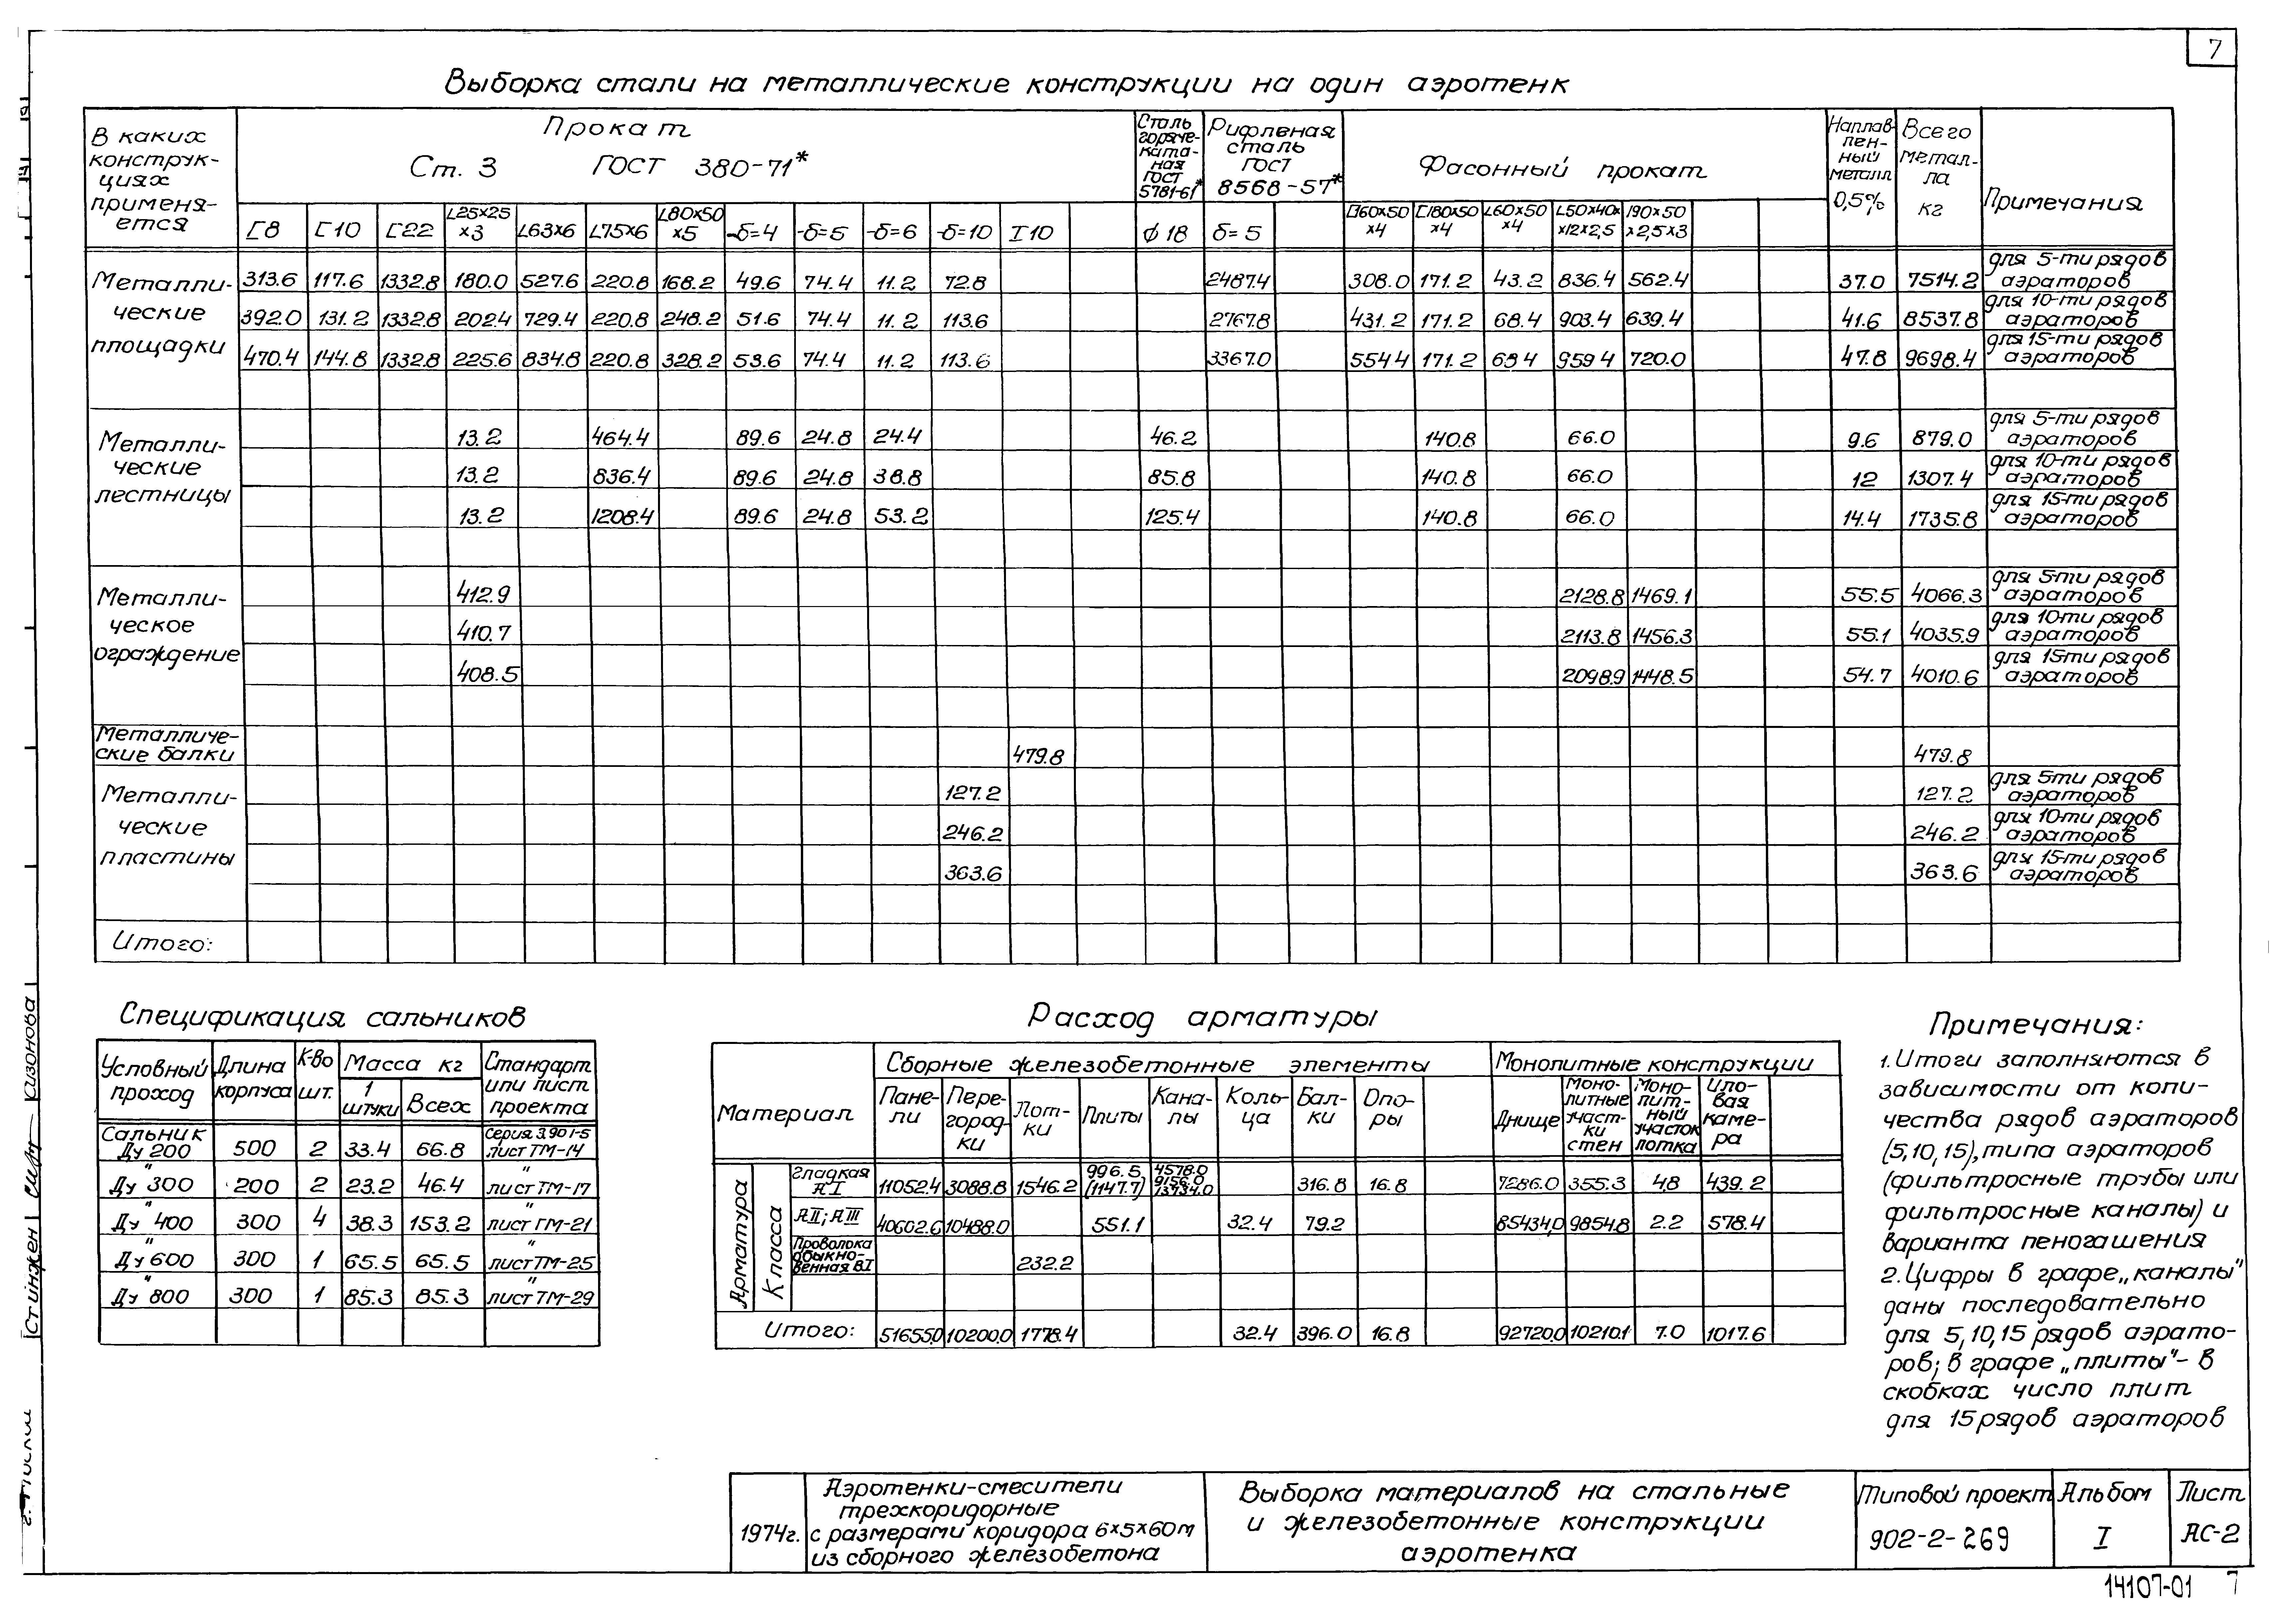 7
Выборка стали на металлические конструкции на один аэротенк
В каких конструкциях применяется
Прокат
Ст. 3 ГОСТ 380-71*
Сталь горячекатаная ГОСТ 5781-61*
Рифленая сталь ГОСТ 8568-57*
Фасонный прокат
Наплавленный металл 0,5%
Всего металла кг
Примечания
[8 [10 [22 L25×25×3 L63×6 L75×6 L80×50×5 -δ=4 -δ=5 -δ=6 -δ=10 I10 ϕ18 δ=5 [160×50×4 [180×50×4 L60×50×4 L50×40××12×2,5 190×50×2,5×3
Металлические площадки
313.6 117.6 1332.8 180.0 527.6 220.8 168.2 49.6 74.4 11.2 72.8 2487.4 308.0 171.2 43.2 836.4 562.4 37.0 7514.2 для 5-ти рядов аэраторов
392.0 131.2 1332.8 202.4 729.4 220.8 248.2 51.6 74.4 11.2 113.6 2767.8 431.2 171.2 68.4 903.4 639.4 41.6 8537.8 для 10-ти рядов аэраторов
470.4 144.8 1332.8 225.6 834.8 220.8 328.2 53.6 74.4 11.2 113.6 3367.0 554.4 171.2 68.4 959.4 720.0 47.8 9698.4 для 15-ти рядов аэраторов
Металлические лестницы
13.2 464.4 89.6 24.8 24.4 46.2 140.8 66.0 9.6 879.0 для 5-ти рядов аэраторов
13.2 836.4 89.6 24.8 38.8 85.8 140.8 66.0 12 1307.4 для 10-ти рядов аэраторов
13.2 1208.4 89.6 24.8 53.2 125.4 140.8 66.0 14.4 1735.8 для 15-ти рядов аэраторов
Металлическое ограждение
412.9 2128.8 1469.1 55.5 4066.3 для 5-ти рядов аэраторов
410.7 2113.8 1456.3 55.1 4035.9 для 10-ти рядов аэраторов
408.5 2098.9 1448.5 54.7 4010.6 для 15-ти рядов аэраторов
Металлические балки 479.8 479.8
Металлические пластины
127.2 127.2 для 5-ти рядов аэраторов
246.2 246.2 для 10-ти рядов аэраторов
363.6 363.6 для 15-ти рядов аэраторов
Итого:
Спецификация сальников
Условный проход Длина корпуса К-во шт. Масса кг Стандарт или лист проекта
1 штуки Всех
Сальник Ду 200 500 2 33.4 66.8 Серия 3.901-5 лист ТМ-14
" Ду 300 200 2 23.2 46.4 " лист ТМ-17
" Ду 400 300 4 38.3 153.2 " лист ТМ-21
" Ду 600 300 1 65.5 65.5 " лист ТМ-25
" Ду 800 300 1 85.3 85.3 " лист ТМ-29
Расход арматуры
Материал
Сборные железобетонные элементы Монолитные конструкции
Панели Перегородки Лотки Плиты Каналы Кольца Балки Опоры Днище Монолитные участки стен Монолитный участок лотка Иловая камера
Арматура Класса
Гладкая АI 11052.4 3088.8 1546.2 996.5 (1147.7) 4578.0 9156.0 13734.0 316.8 16.8 7286.0 355.3 4,8 439.2
АII; АIII 40602.6 10488.0 551.1 32.4 79.2 85434,0 9854.8 2.2 578.4
Проволока обыкновенная ВI 232.2
Итого: 51655,0 10200,0 1778.4 32.4 396.0 16.8 92720,0 10210,1 7.0 1017.6
Примечания:
1. Итоги заполняются в
зависимости от коли-
чества рядов аэраторов
(5,10,15), типа аэраторов
(фильтросные трубы или
фильтросные каналы) и
варианта пеногашения
2. Цифры в графе „каналы"
даны последовательно
для 5,10,15 рядов аэрато-
ров; в графе „плиты"- в
скобках число плит
для 15 рядов аэраторов
Ст. инжен Кизонова
1974г.
Аэротенки-смесители
трехкоридорные
с размерами коридора 6×5×60м
из сборного железобетона
Выборка материалов на стальные
и железобетонные конструкции
аэротенка
Типовой проект
902-2-269
Альбом
I
Лист
АС-2
14107-01 7